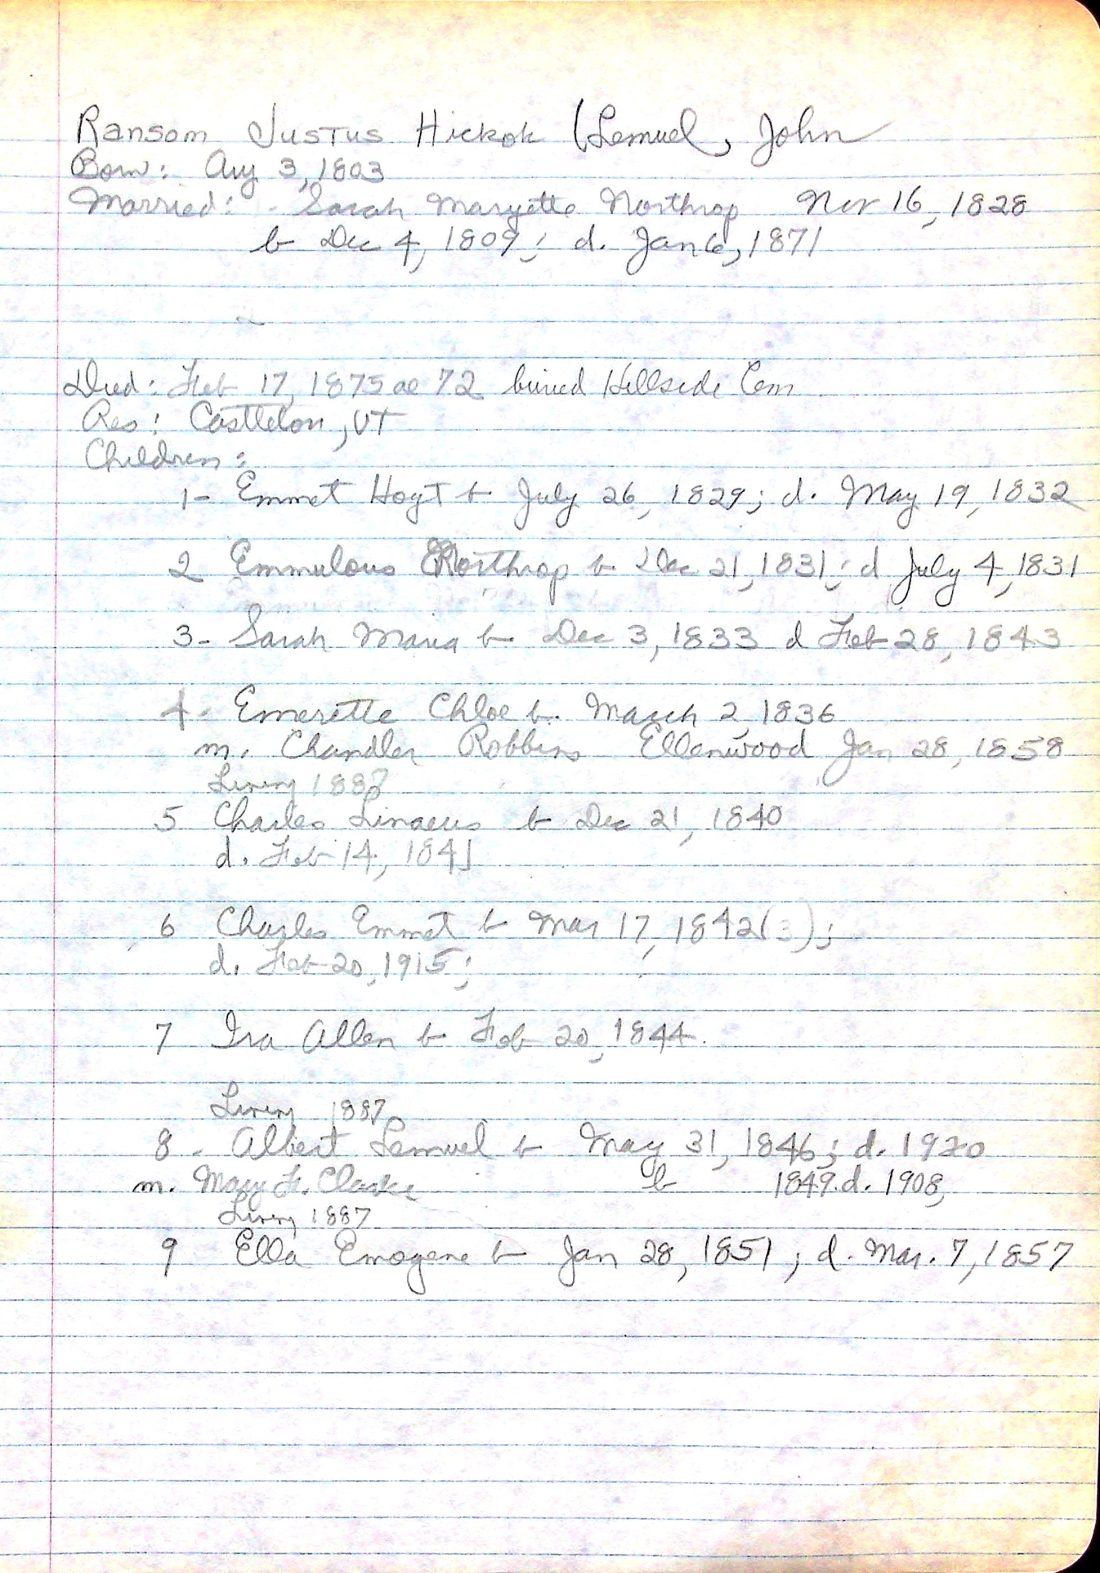 Ransom Justus Hickok (Lemuel, John
Born: Aug 3, 1803
Married: Sarah Maryette Northrop Nov 16, 1828
b Dec 4, 1809; d. Jan 6, 1871
Died: Feb 17, 1875 ae 72 buried Hillside Cem
Res: Castleton, VT
Children:
1- Emmet Hoyt b July 26, 1829; d. May 19, 1832
2 Emmulous Northrop b Dec 21, 1831; d July 4, 1831
3- Sarah Maria b Dec 3, 1833 d Feb 28, 1843
4- Emerette Chloe b. March 2 1836
m. Chandler Robbins Ellenwood Jan 28, 1858
Living 1887
5 Charles Linaeus b Dec 21, 1840
d. Feb 14, 1841
6 Charles Emmet b Mar 17, 1842(3);
d. Feb 20, 1915;
7 Ira Allen b Feb 20, 1844.
Living 1887
8 - Albert Lemuel b May 31, 1846; d. 1920
m. Mary F. Clarke b 1849. d. 1908,
Living 1887
9 Ella Emogene b Jan 28, 1851; d. Mar. 7, 1857